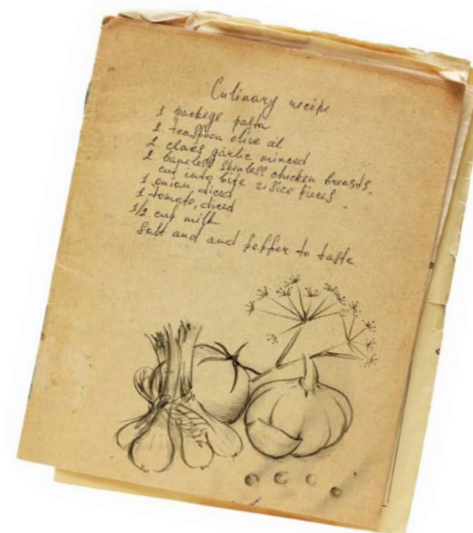 Culinary recipe
1 packege pasta
1 teaspoon olive oil
2 cloves garlic minced
2 boneless skinless chicken breasts,
cut into bite zisize pieces.
1 onion, diced
1 tomato, diced
1/2 cup milk
Salt and and pepper to taste